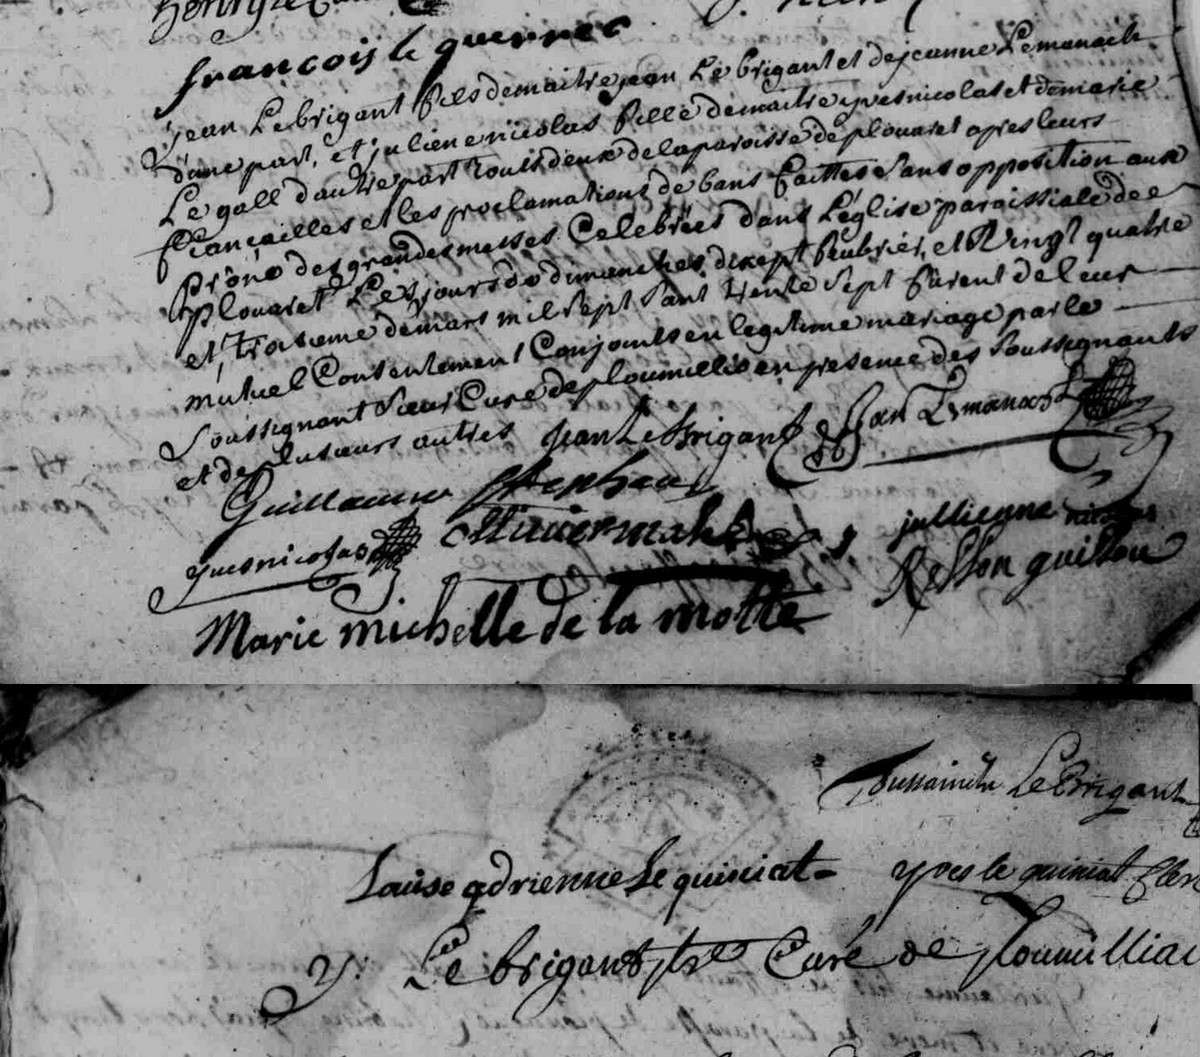 françois le guerrec
jean Le brigant fils de maitre jean Le brigant et de jeanne Le manach
d'une part, et juliene nicolas fille de maitre yves nicolas et de marie
Le gall d'autre part touts deux de la paroisse de plouaret apres leurs
fiançailles et les proclamations de bans faittes sans opposition aux
prône des grandes messes Celebrées dans L'eglise paroissiale de
plouaret Les jours de dimanches dixsept feubrier, et Vingt quatre
et troisieme de mars mil sept sant trente sept furent de leur
mutuel Consentement Conjoints en legitime mariage par le
Soussignant sieur Curé de ploumillio en presence des Soussignants
et de plusieurs autres jean Le Brigant jan Le manach
Guillaume Stephan
yves nicolas jullienne nicolas
guillou
Marie michelle de la motte
Toussaint Le Brigant
Louise adrienne Le quiniat yves le quiniat
y: Le brigant ptre Curé de ploumilliau